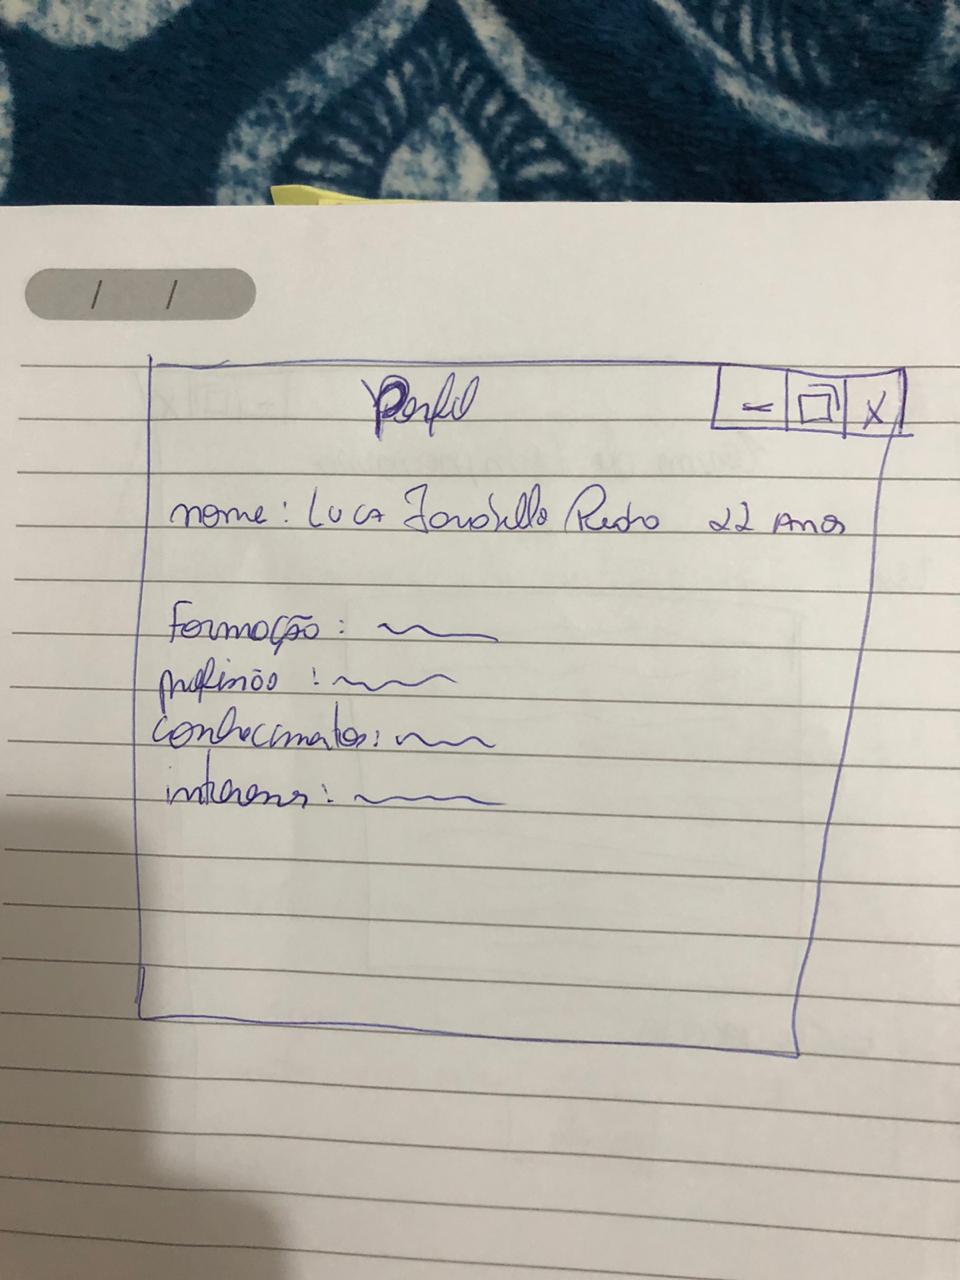 / /
Perfil
- X
nome: Luca 22 Anos
Formação:
profissão:
conhecimentos:
interesses: